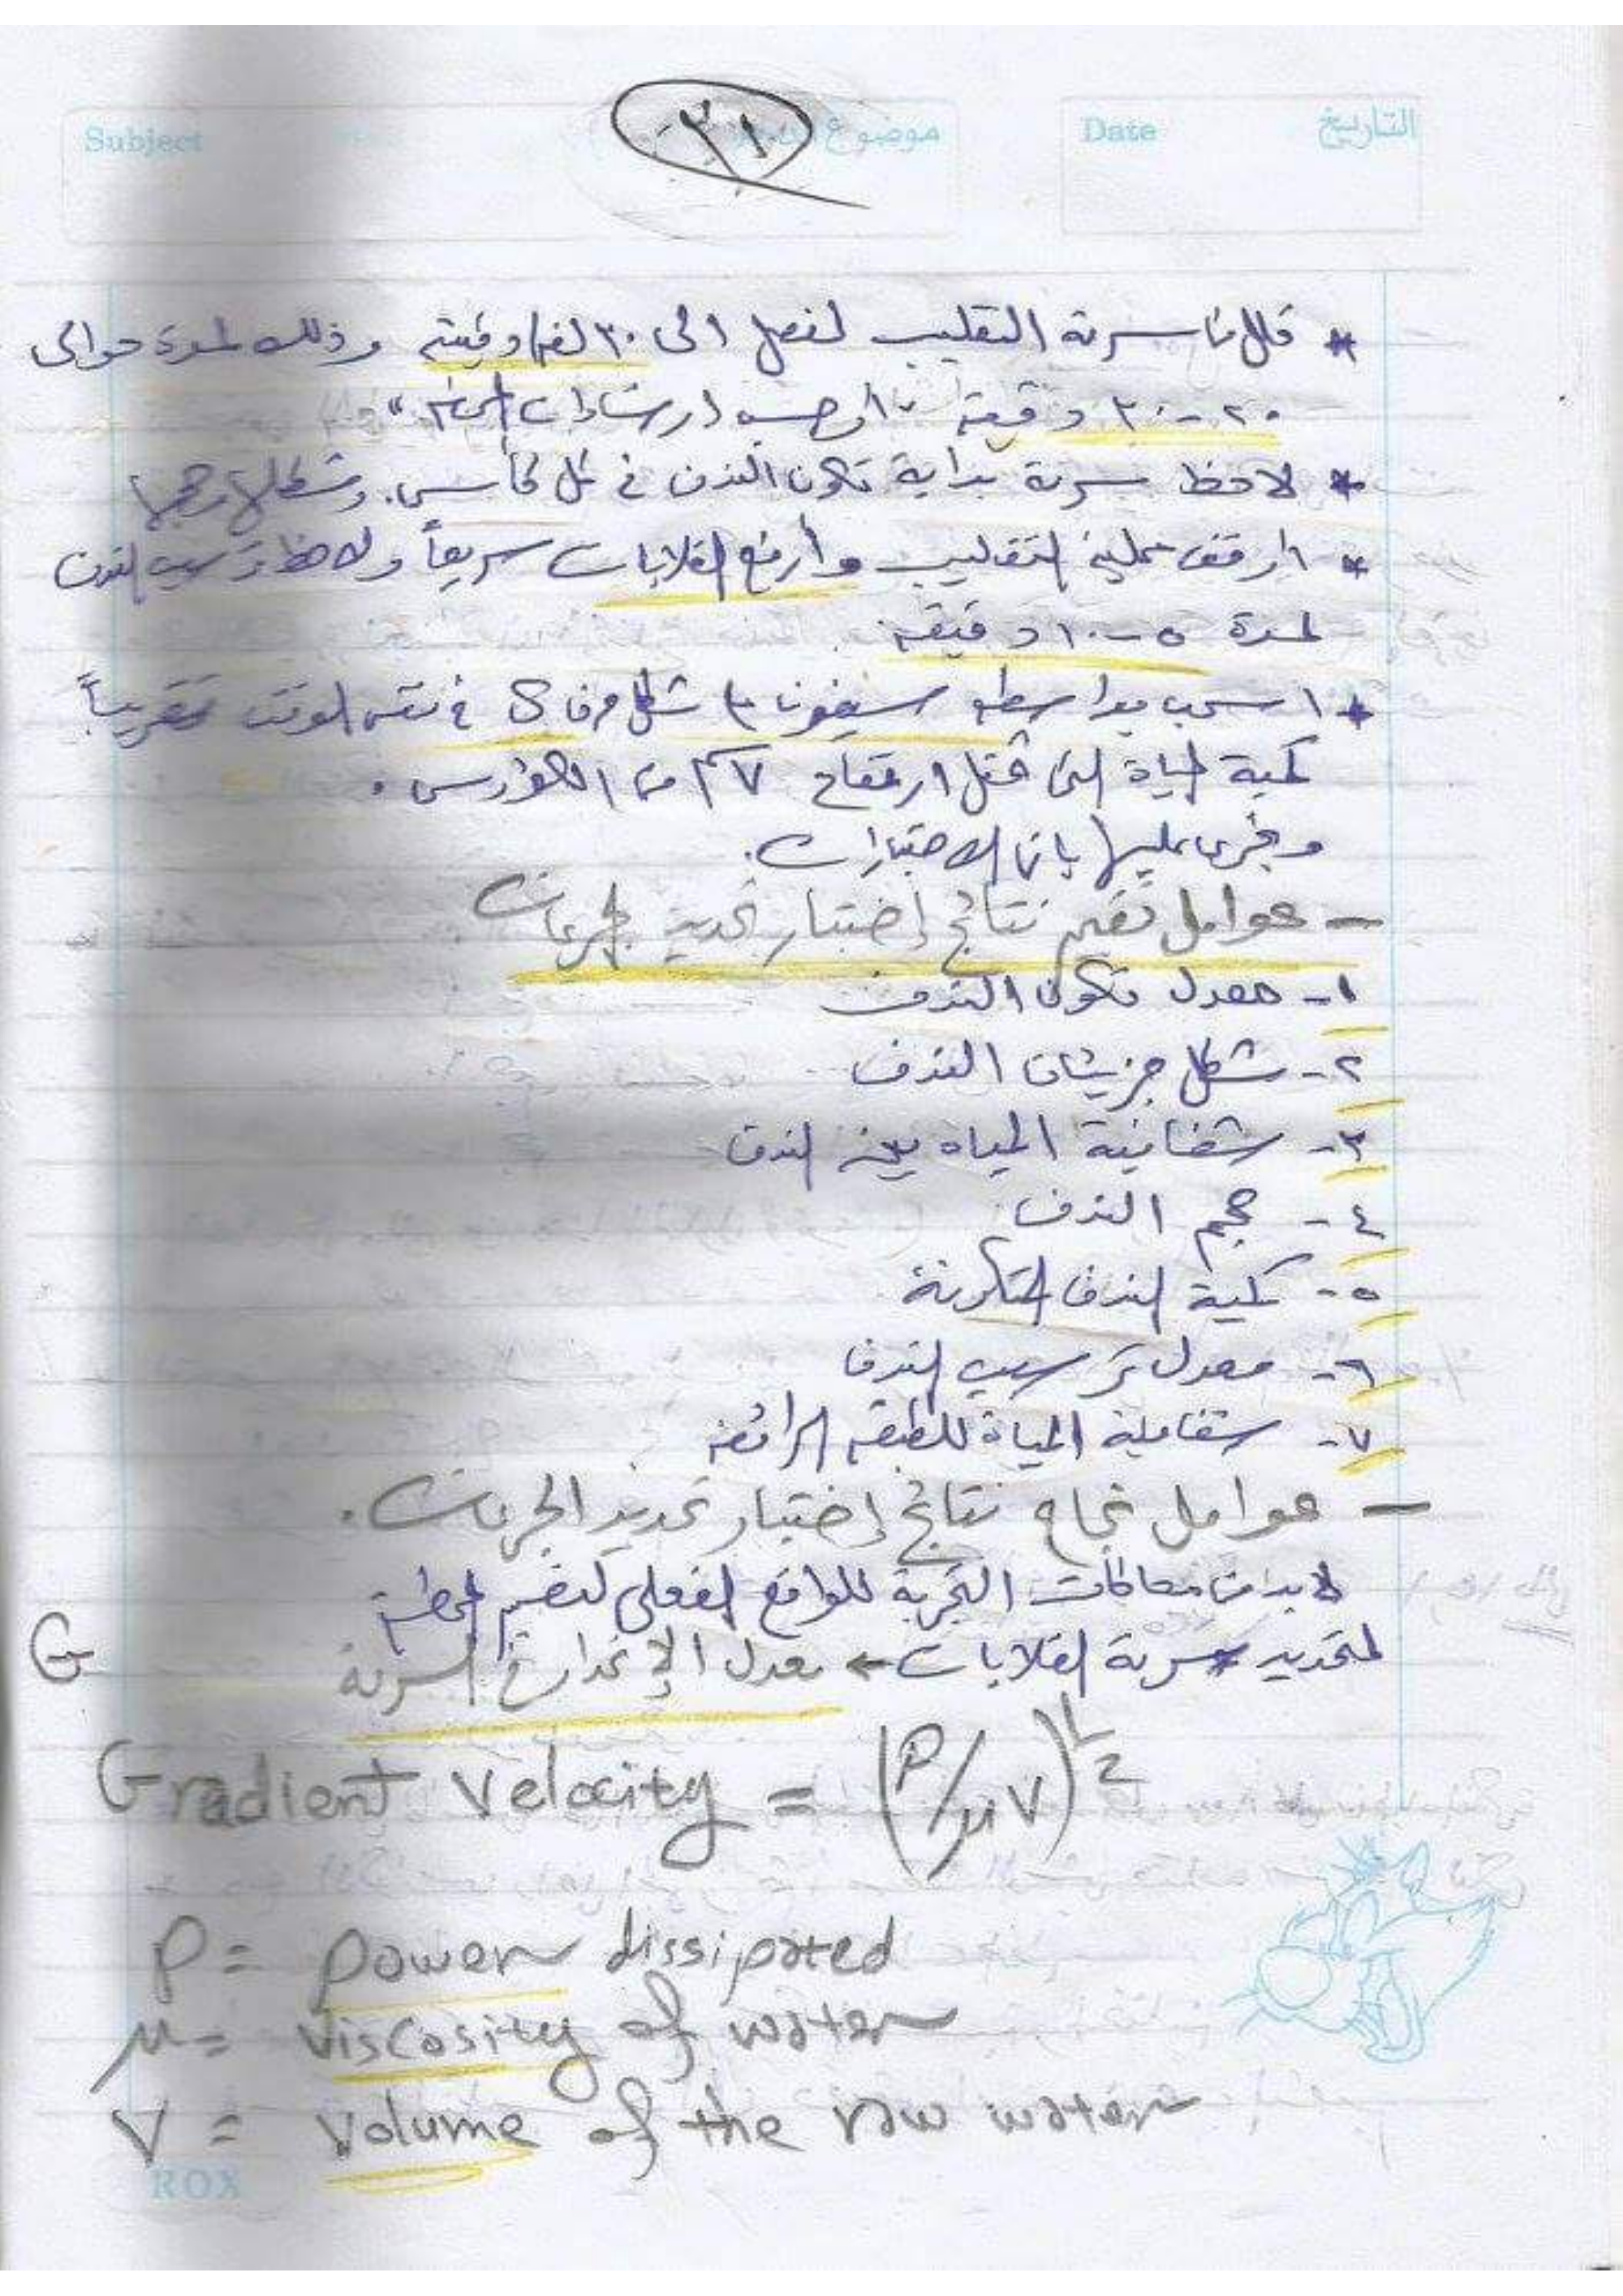 Subject موضوع الدرس Date التاريخ
٣١
* قلل من سرعة التقليب لتصل الى ٣٠ لفة/دقيقة وذلك لمدة حوالى
٢٠-٣٠ دقيقة "أو حسب ارشادات
* لاحظ سرعة بداية تكون الندف فى كل كأس. وشكلها وحجمها
* اوقف عملية التقليب وأرفع القلابات سريعاً ولاحظ ترسيب الندف
لمدة ٥-١٠ دقيقة.
* اسحب بواسطة سيفون على شكل حرف فى نفس الوقت تقريباً
كمية المياة التى تمثل ارتفاع ٧سم من الكؤوس.
ونجرى عليها باقى الاختبارات.
- عوامل تقيم نتائج إختبار تحديد الجرعات
١- معدل تكون الندف
٢- شكل جزيئات الندف
٣- شفافية المياه بين الندف
٤- حجم الندف
٥- كمية الندف المتكونة
٦- معدل ترسيب الندف
٧- شفافية المياة للطبقة الرائقة
- عوامل نجاح نتائج إختبار تحديد الجرعات.
لابد من محاكات التجربة للواقع الفعلى لتصميم المحطة
لتحديد سرعة القلابات ← معدل الإنحدار فى السرعة G
Gradient Velocity = (P/μV)^½
P = power dissipated
μ = viscosity of water
V = Volume of the raw water
ROX